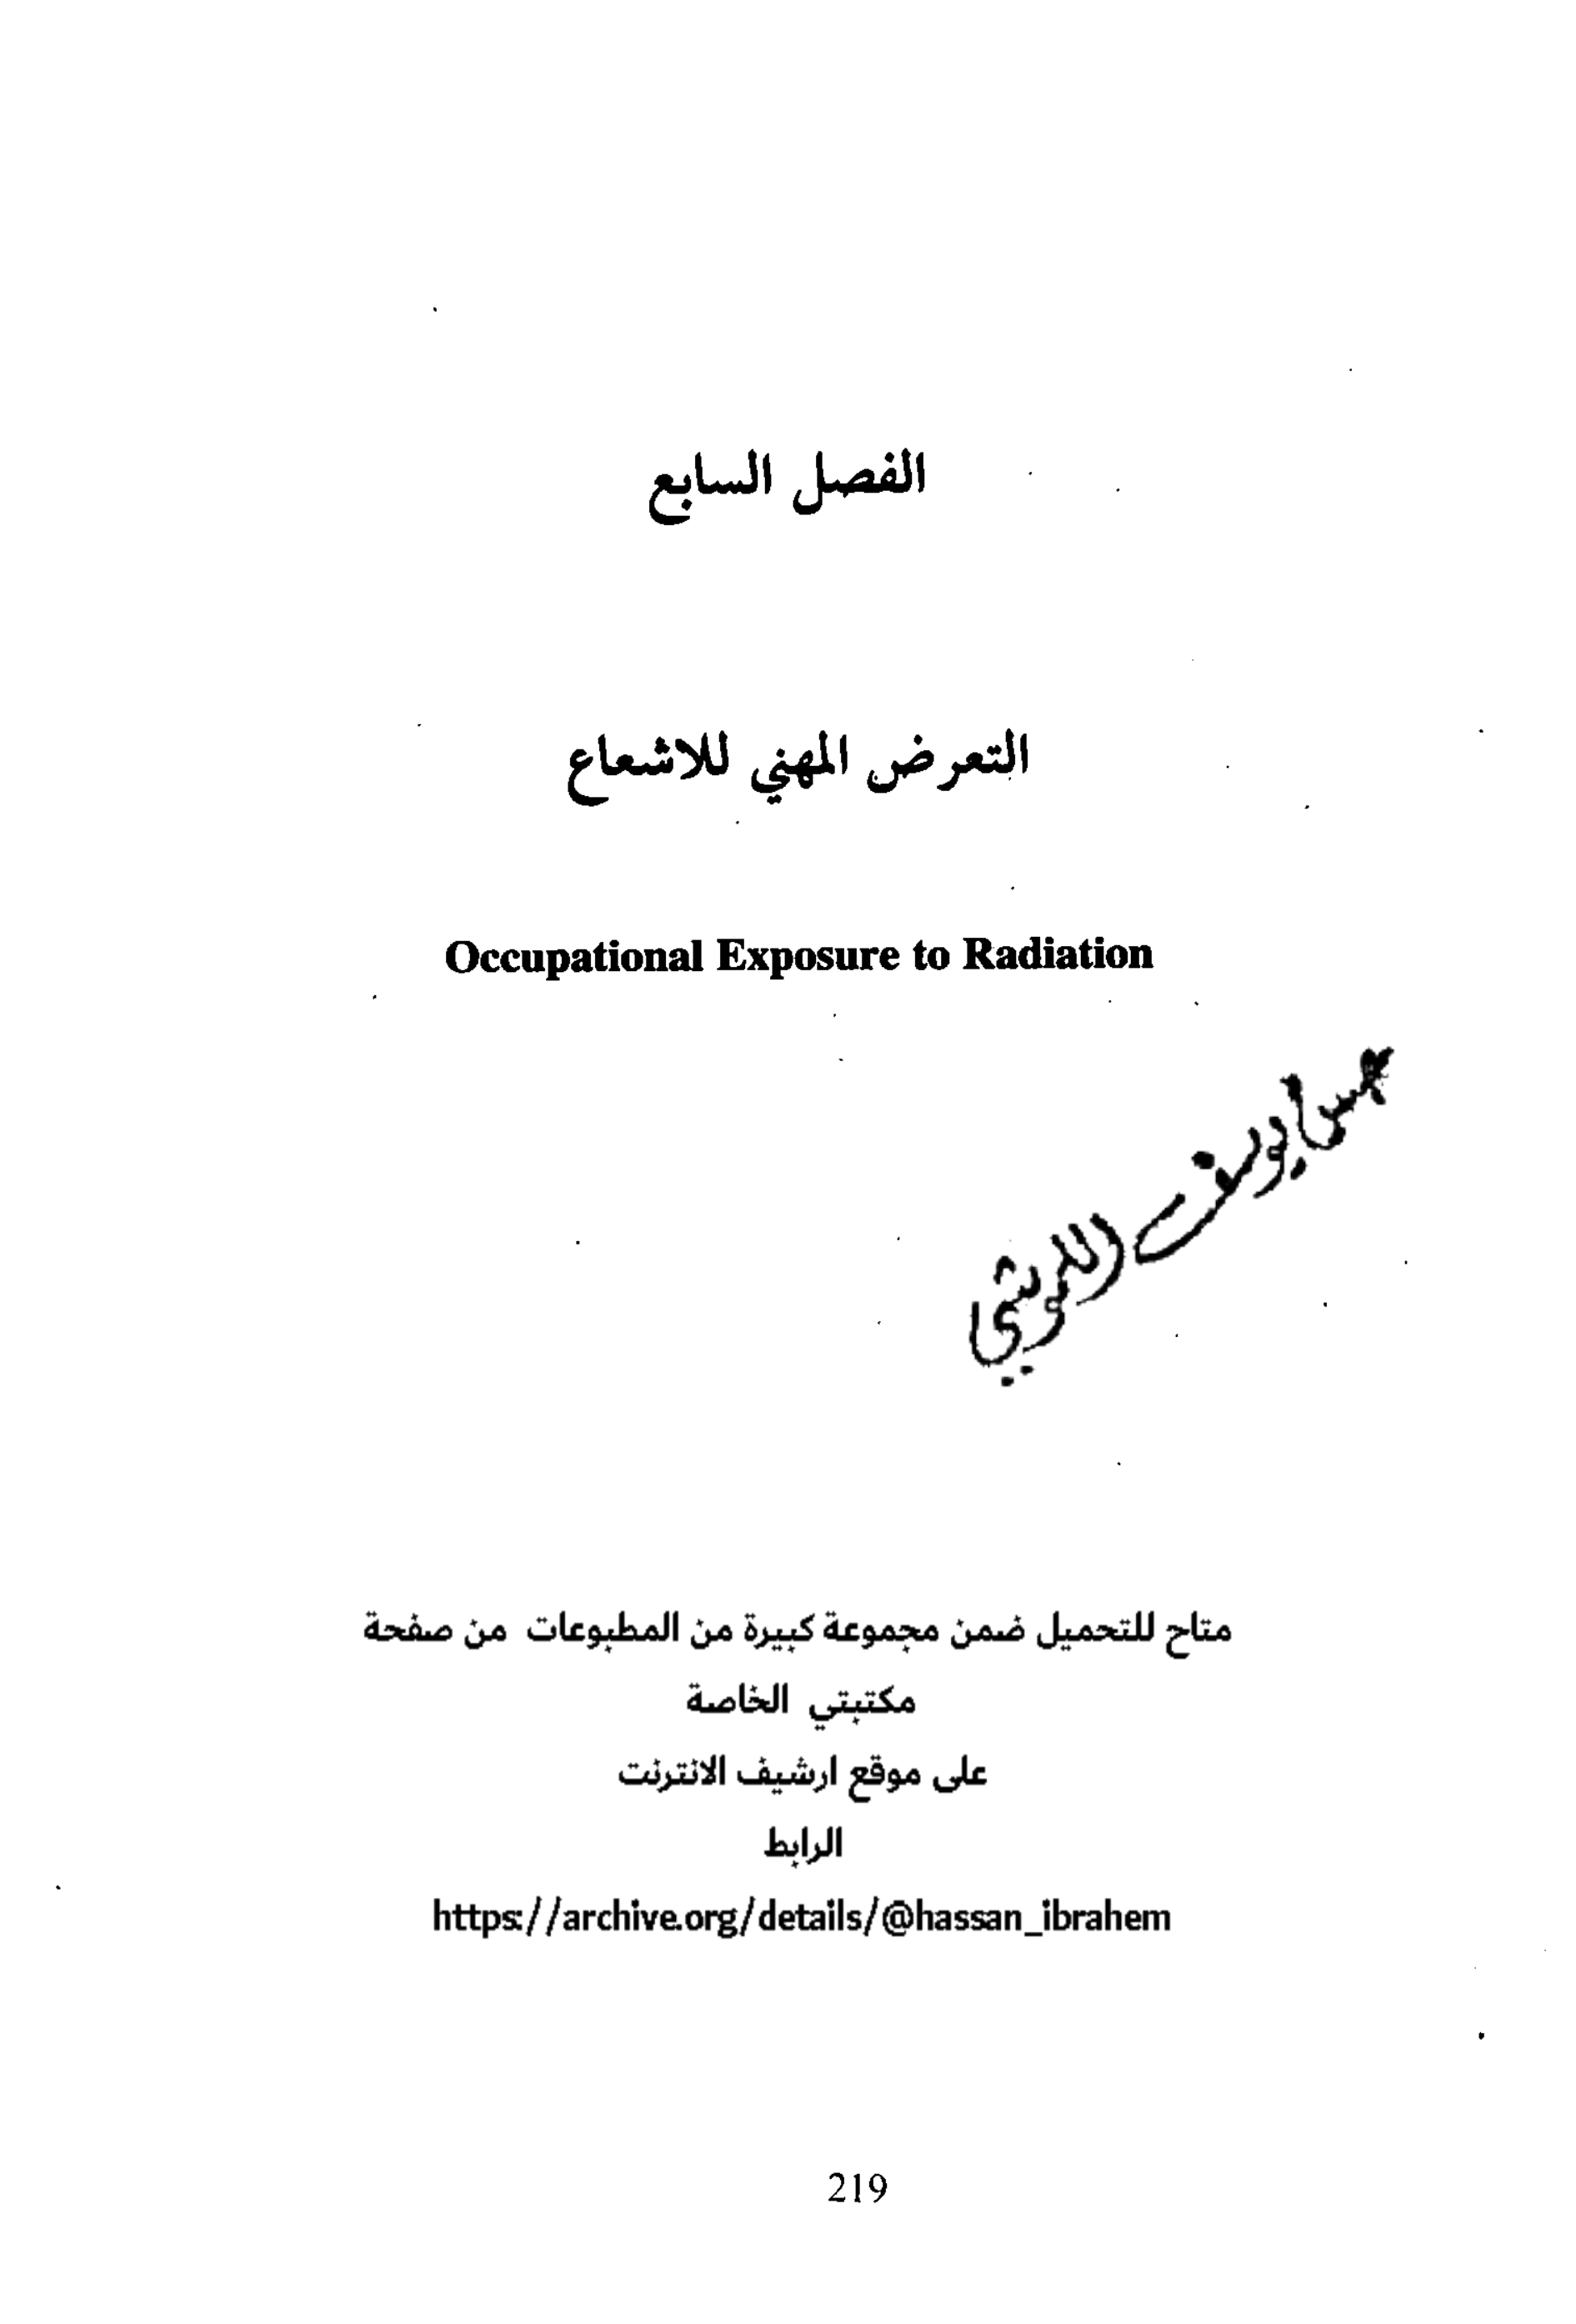 الفصل السابع
التعرض المهني للاشعاع
Occupational Exposure to Radiation
متاح للتحميل ضمن مجموعة كبيرة من المطبوعات من صفحة
مكتبتي الخاصة
على موقع ارشيف الانترنت
الرابط
https://archive.org/details/@hassan_ibrahem
219